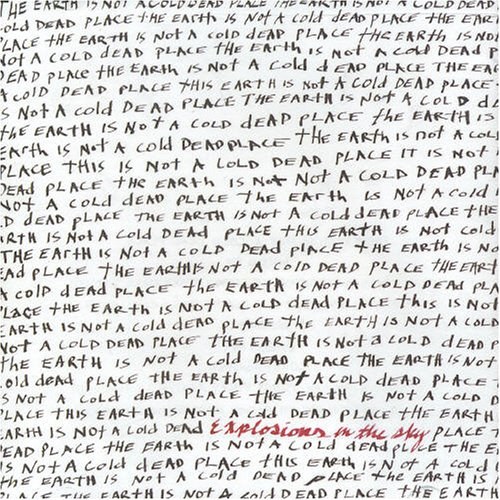 THE EARTH IS NOT A COLD DEAD PLACE THE EARTH IS NOT A COLD DEAD
OLD DEAD PLACE tHE EARTH IS NOT A COLD DEAD PLACE THE EAR
LACE tHE EARTH IS NOT A COLD DEAD PLACE tHE EARTH IS NO
NOT A COLD DEAD PLACE THE EARTH IS NOT A COLD DEAD P
DEAD PLACE tHE EARTH IS NOT A COLD dEAD PLACE THE EA
A COLD DEAD PLACE tHIS EARTH IS NOT A COLD DEAD PLACE
S NOT A COLD DEAD PLACE THE EARtH IS NOT A COLD D
tHE EARTH IS NOT A COLD DEAD PLACE tHE EARTH IS
EARth IS NOT A COLD DEAD PLACE tHE EARth IS NOT A COL
PLACE tHIS IS NOT A COLD DEAD PLACE IT IS NOT
DEAD PLACE tHE EARth IS NOT NOT A COLD DEAD PL
NOT A COLD DEAD PLACE tHE EARTH IS NOT A COLD
D DEAD PLACE THE EARTH IS NOT A COLD DEAD PLACE tHE
RTH IS NOT A COLD DEAD PLACE tHIS EARTH IS NOT COLD
THE EARTH IS NOT A COLD DEAD PLACE tHE EARTH IS NO
EAD PLACE tHE EARTH IS NOT A COLD DEAD PLACE tHE EART
A COLD dEAD PLACE tHE EARTH IS NOT A COLD DEAD PLA
LACE tHE EARTH IS NOT A COLD DEAD PLACE tHIS IS NOT
EARTH IS NOT A COLD DEAD PLACE THE EARTH IS NOT A COLD
NOT A COLD DEAD PLACE tHE EARTH IS NOT A COLD DEAD P
tHE EARTH IS NOT A COLD DEAD PLACE THE EARTH IS NOT
OLD DEAD PLACE tHE EARTH IS NOT A COLD DEAD PLACE
S NOT A COLD DEAD PLACE tHE EARTH IS NOT A COLD D
LACE tHIS EARTH IS NOT A COLD DEAD PLACE tHE EARTH
EARTH IS NOT A COLD DEAD Explosions in the sky PLACE T
EAD PLACE THE EARTH IS NOT A COLD DEAD PLACE THE E
IS NOT A COLD DEAD PLACE tHIS EARTH IS NOT A COLD
tHE EARTH IS NOT A COLD DEAD PLACE tHE EARTH IS
PLACE tHE EARTH IS NOT A COLD DEAD PLACE tHE EART